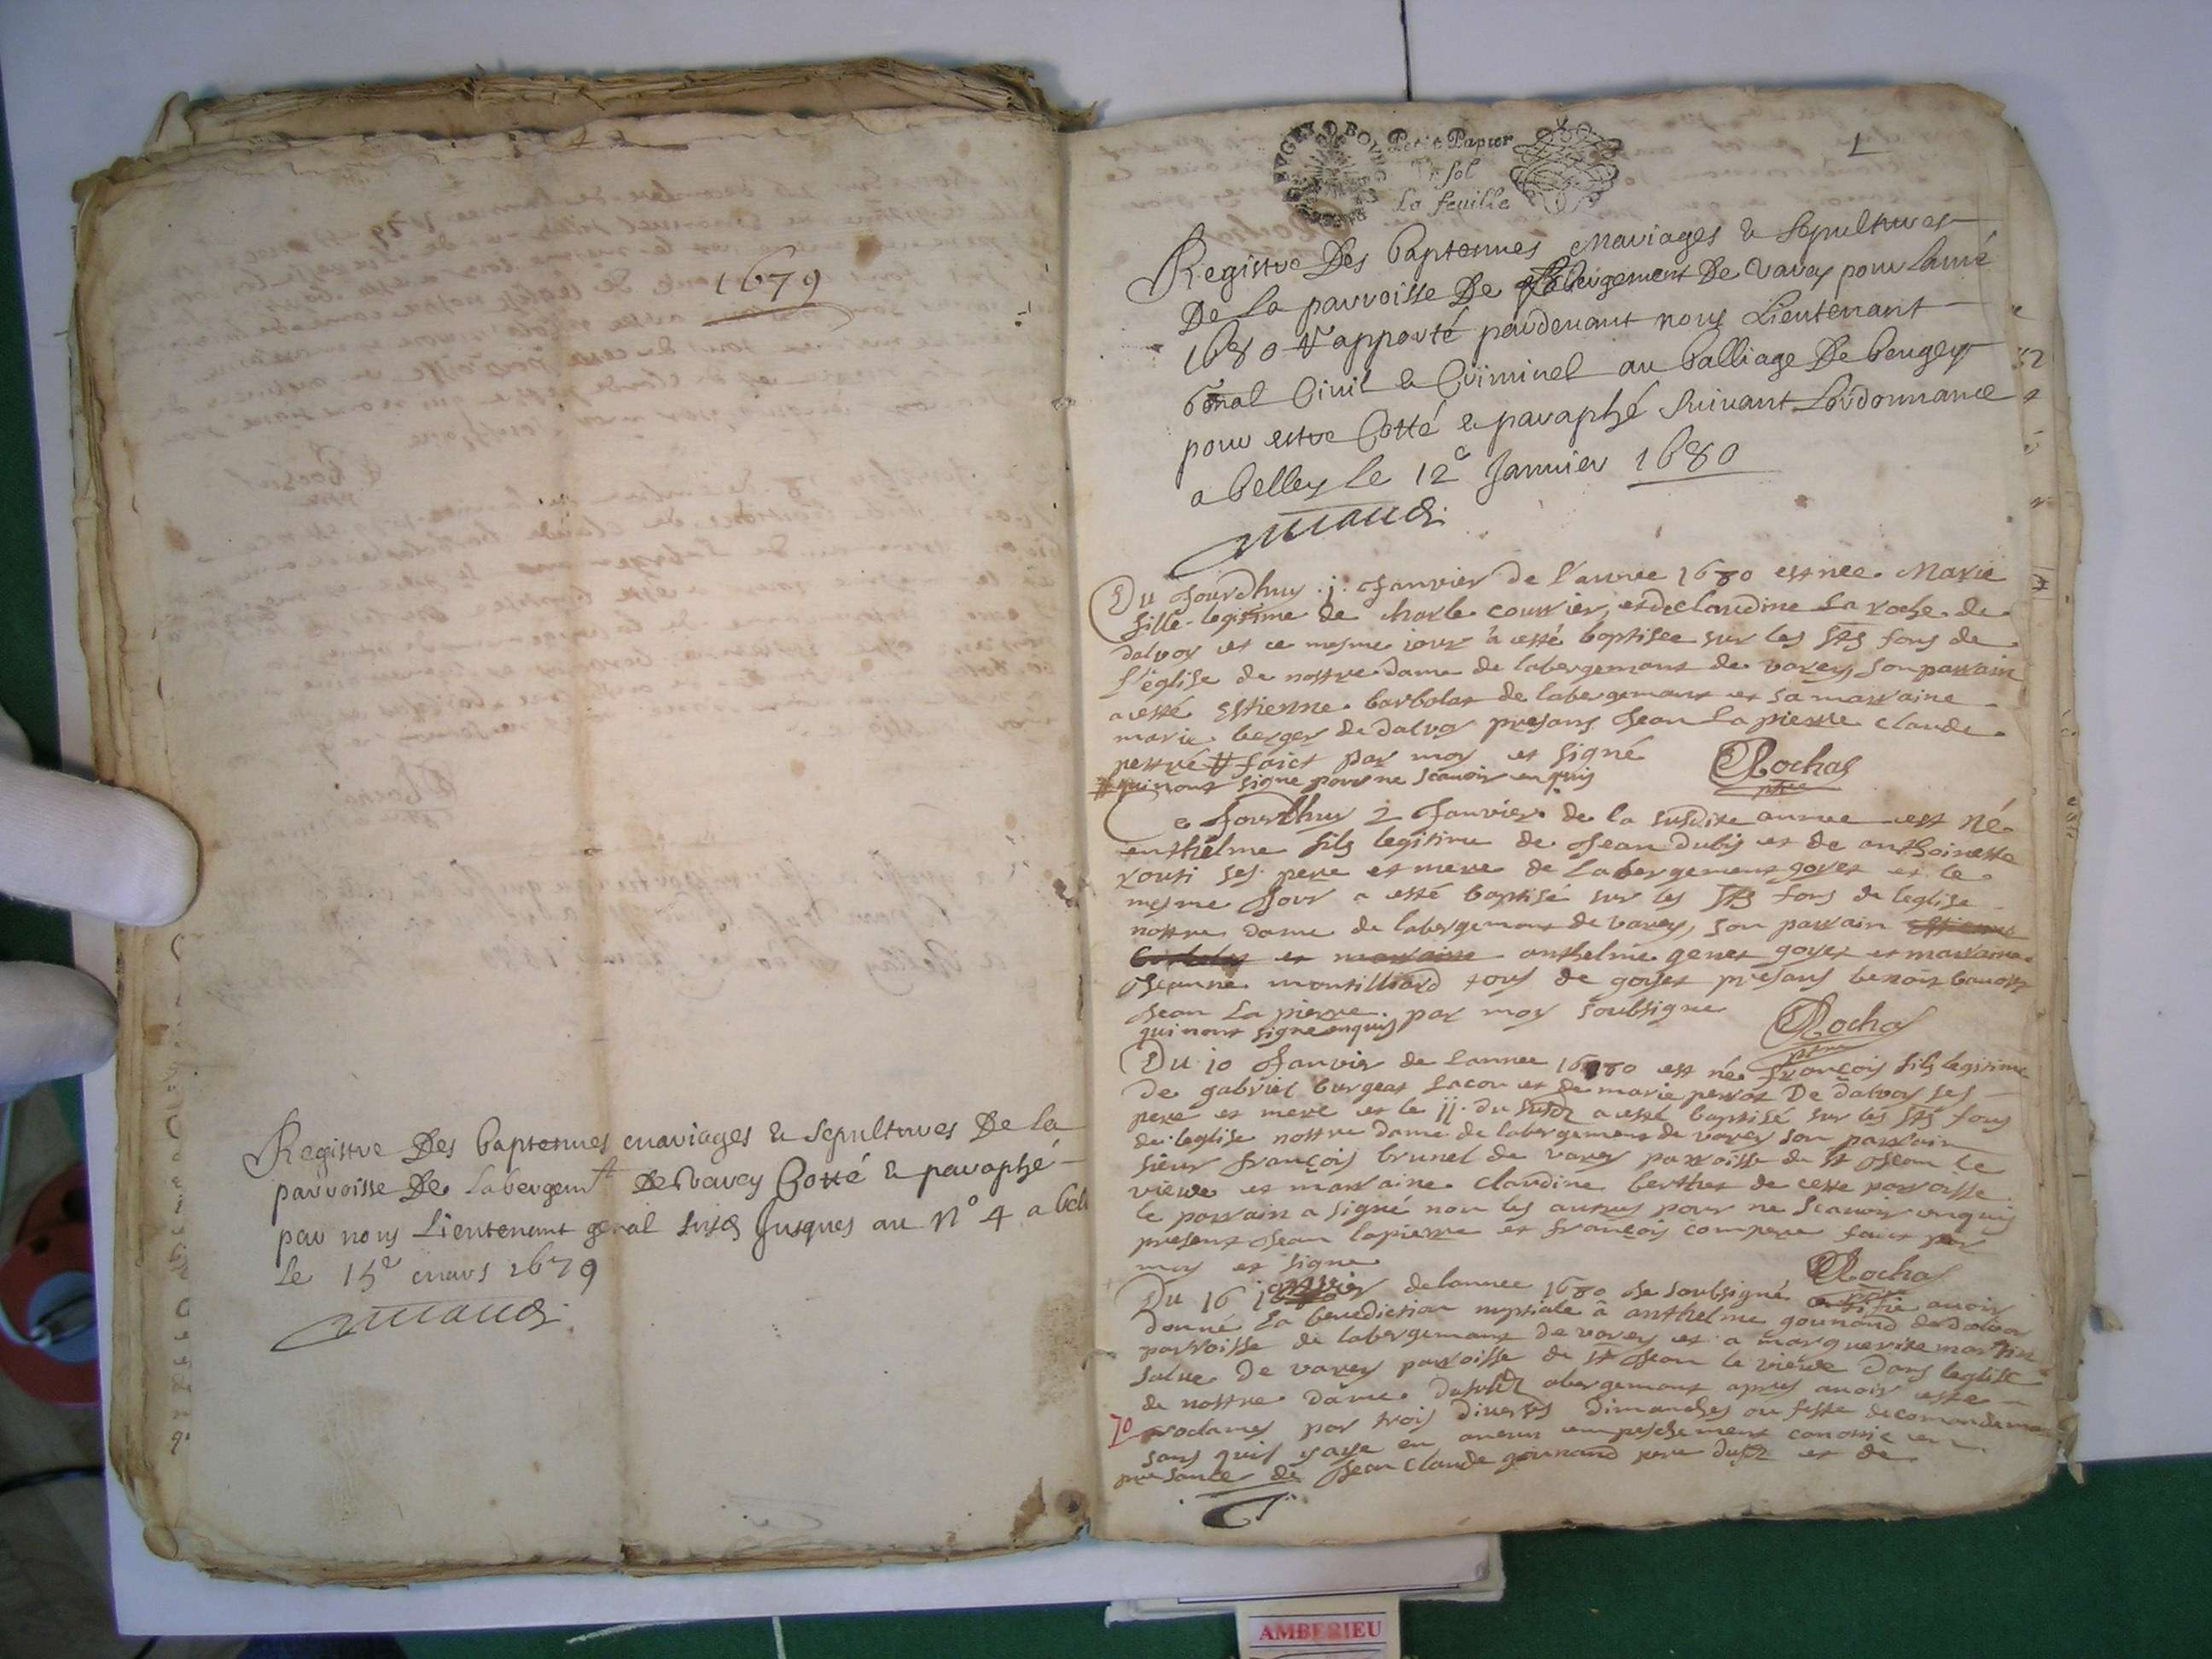 1679
Registre Des baptemes mariages & sepultures De la
parroisse De labergemt De Varey Cotté & paraphé
par nous Lieutenant gnal susd Jusques au N° 4 a bell
le 15e mars 1679
1
BVGEY D BOVRG
Petit Papier
Un sol
La feuille
Registre Des baptemes Mariages & Sepultures
De La parroisse De Labergement De Varey pour Lanné
1680 Rapporté pardevant nous Lieutenant
Gnal Civil & Criminel au balliage De beugey
pour estre Cotté & paraphé suivant Lordonnance
a belley le 12e Janvier 1680
Du Jourdhuy j Janvier de l'annee 1680 est nee Marie
fille legitime de charle courrier, et de claudine la roche de
dalvoy et ce mesme jour a esté baptisee sur les sts fons de
l'église de nostre dame de labergemant de varey son parrain
a esté Estienne barbolat de labergemant et sa marraine
marie berger de dalvoy presans Jean la pierre claude
perré # faict par moy et signé
Rochas
# qui nont signe pour ne scavoir enquis
ptre
Ce Jourdhuy 2 Janvier de la susdite annee est né
anthelme fils legitime de Jean dubis et de anthoinette
routi ses pere et mere de labergement goyet et le
mesme Jour a esté baptisé sur les sts fons de leglise
nostre dame de labergemant de varey, son parrain
et marraine anthelme genet goyet et marraine
Jeanne montilliard tous de goyet presans benoit
Jean la pierre par moy soubsigne
Rochas
qui nont signe enquis
ptre
Du 10 Janvier de lannee 1680 est né françois fils legitime
de gabriel burgeat lacon et de marie perrot De dalvoy ses
pere et mere et le jj du susdt a esté baptisé sur les sts fons
de leglise nostre dame de labergement de varey son parrain
sieur françois brunel de varey parroisse de st Jean le
vieux et marraine claudine berthet de cette parroisse
le parrain a signé non les autres pour ne scavoir enquis
present Jean lapierre et françois compere faict par
moy et signe
Rochas
ptre
Du 16 janvier de lannee 1680 Je soubsigné certifie avoir
donné la benediction nuptiale à anthelme gounand de dalvoy
parroisse de labergemant de varey et a marguerite martin
salue de varey parroisse de st Jean le vieux dans leglise
de nostre dame dudit abergemant apres avoir esté
proclames par trois divers dimanches ou feste de comandemant
sans quil y aye eu aucun empeschement canonic en
presance de Jean Claude gounand pere dudt et de
AMBERIEU